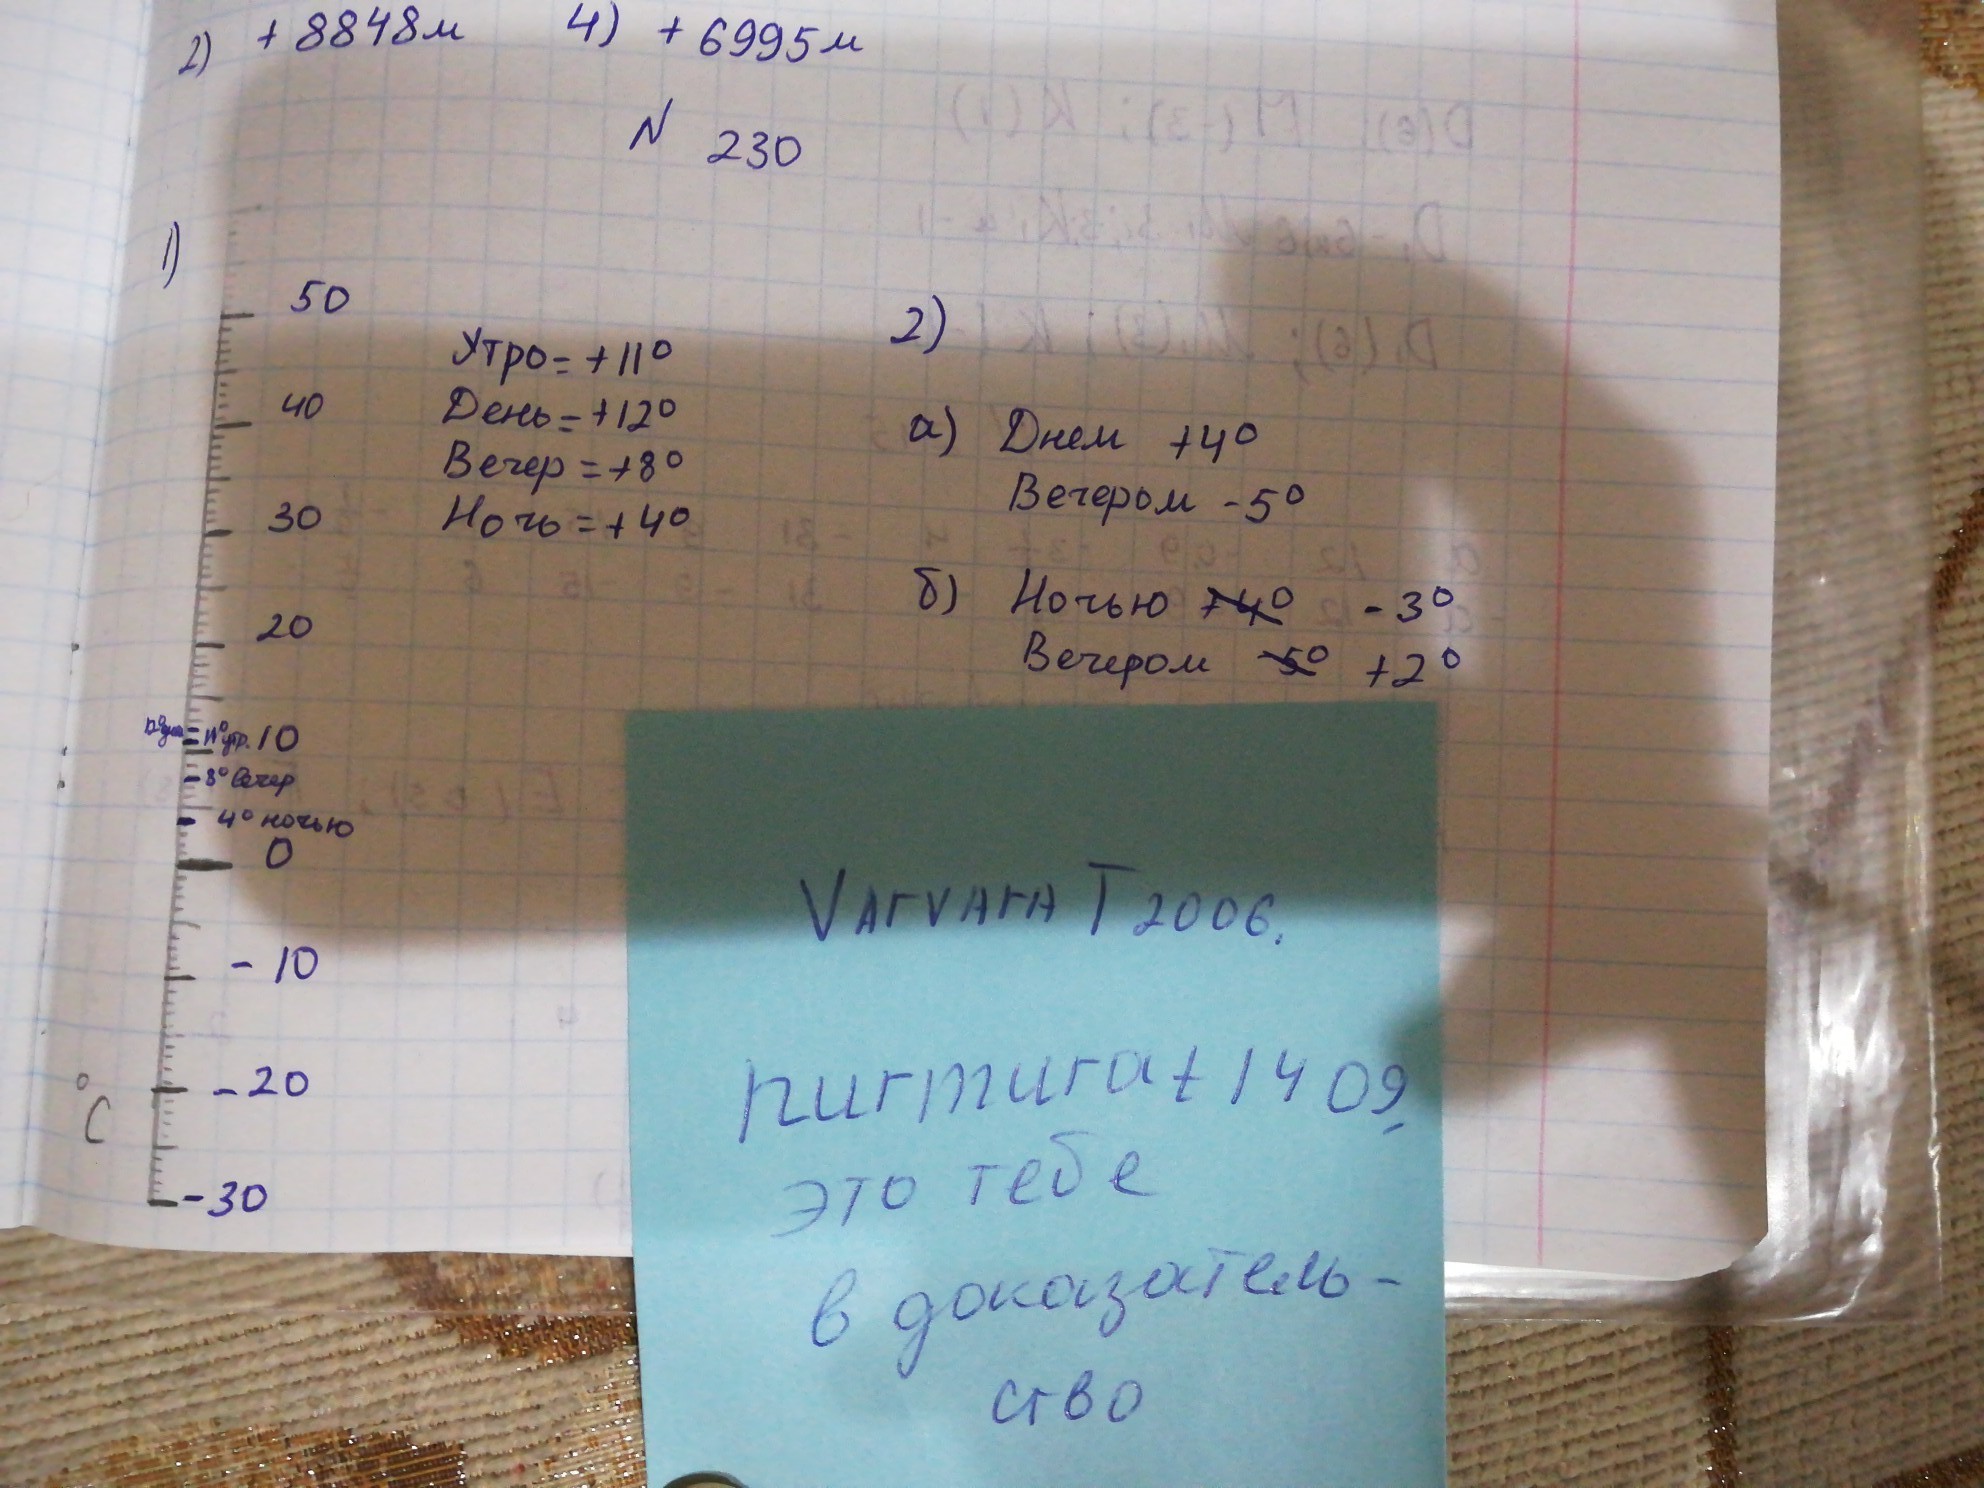 2) +8848м 4) +6995м
N 230
1)
50
40
30
20
10
11° утр.
8° вечер
4° ночью
0
-10
-20
-30
°C
Утро=+11°
День=+12°
Вечер=+8°
Ночь=+4°
2)
а) Днем +4°
Вечером -5°
б) Ночью +4° -3°
Вечером -5° +2°
VArvArA T 2006.
nurmurat 1409.
это тебе
в доказатель-
ство